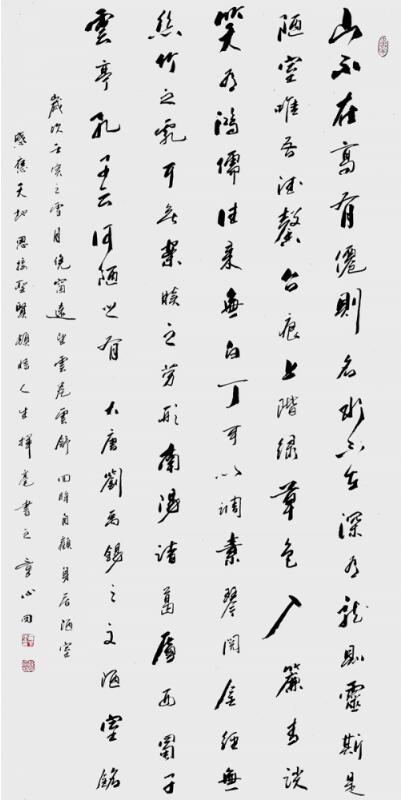 山不在高有僊則名水不在深有龍則靈斯是
陋室唯吾德馨苔痕上階緑草色入簾青談
笑有鴻儒往来無白丁可以調素琴閲金經無
絲竹之亂耳無案牘之勞形南陽諸葛廬西蜀子
雲亭孔子云何陋之有 大唐劉禹錫之文陋室銘
歲次壬寅之雪月窗遠望雲卷雲舒回眸自顧身居陋室
感應天地思接聖賢頓悟人生揮毫書之